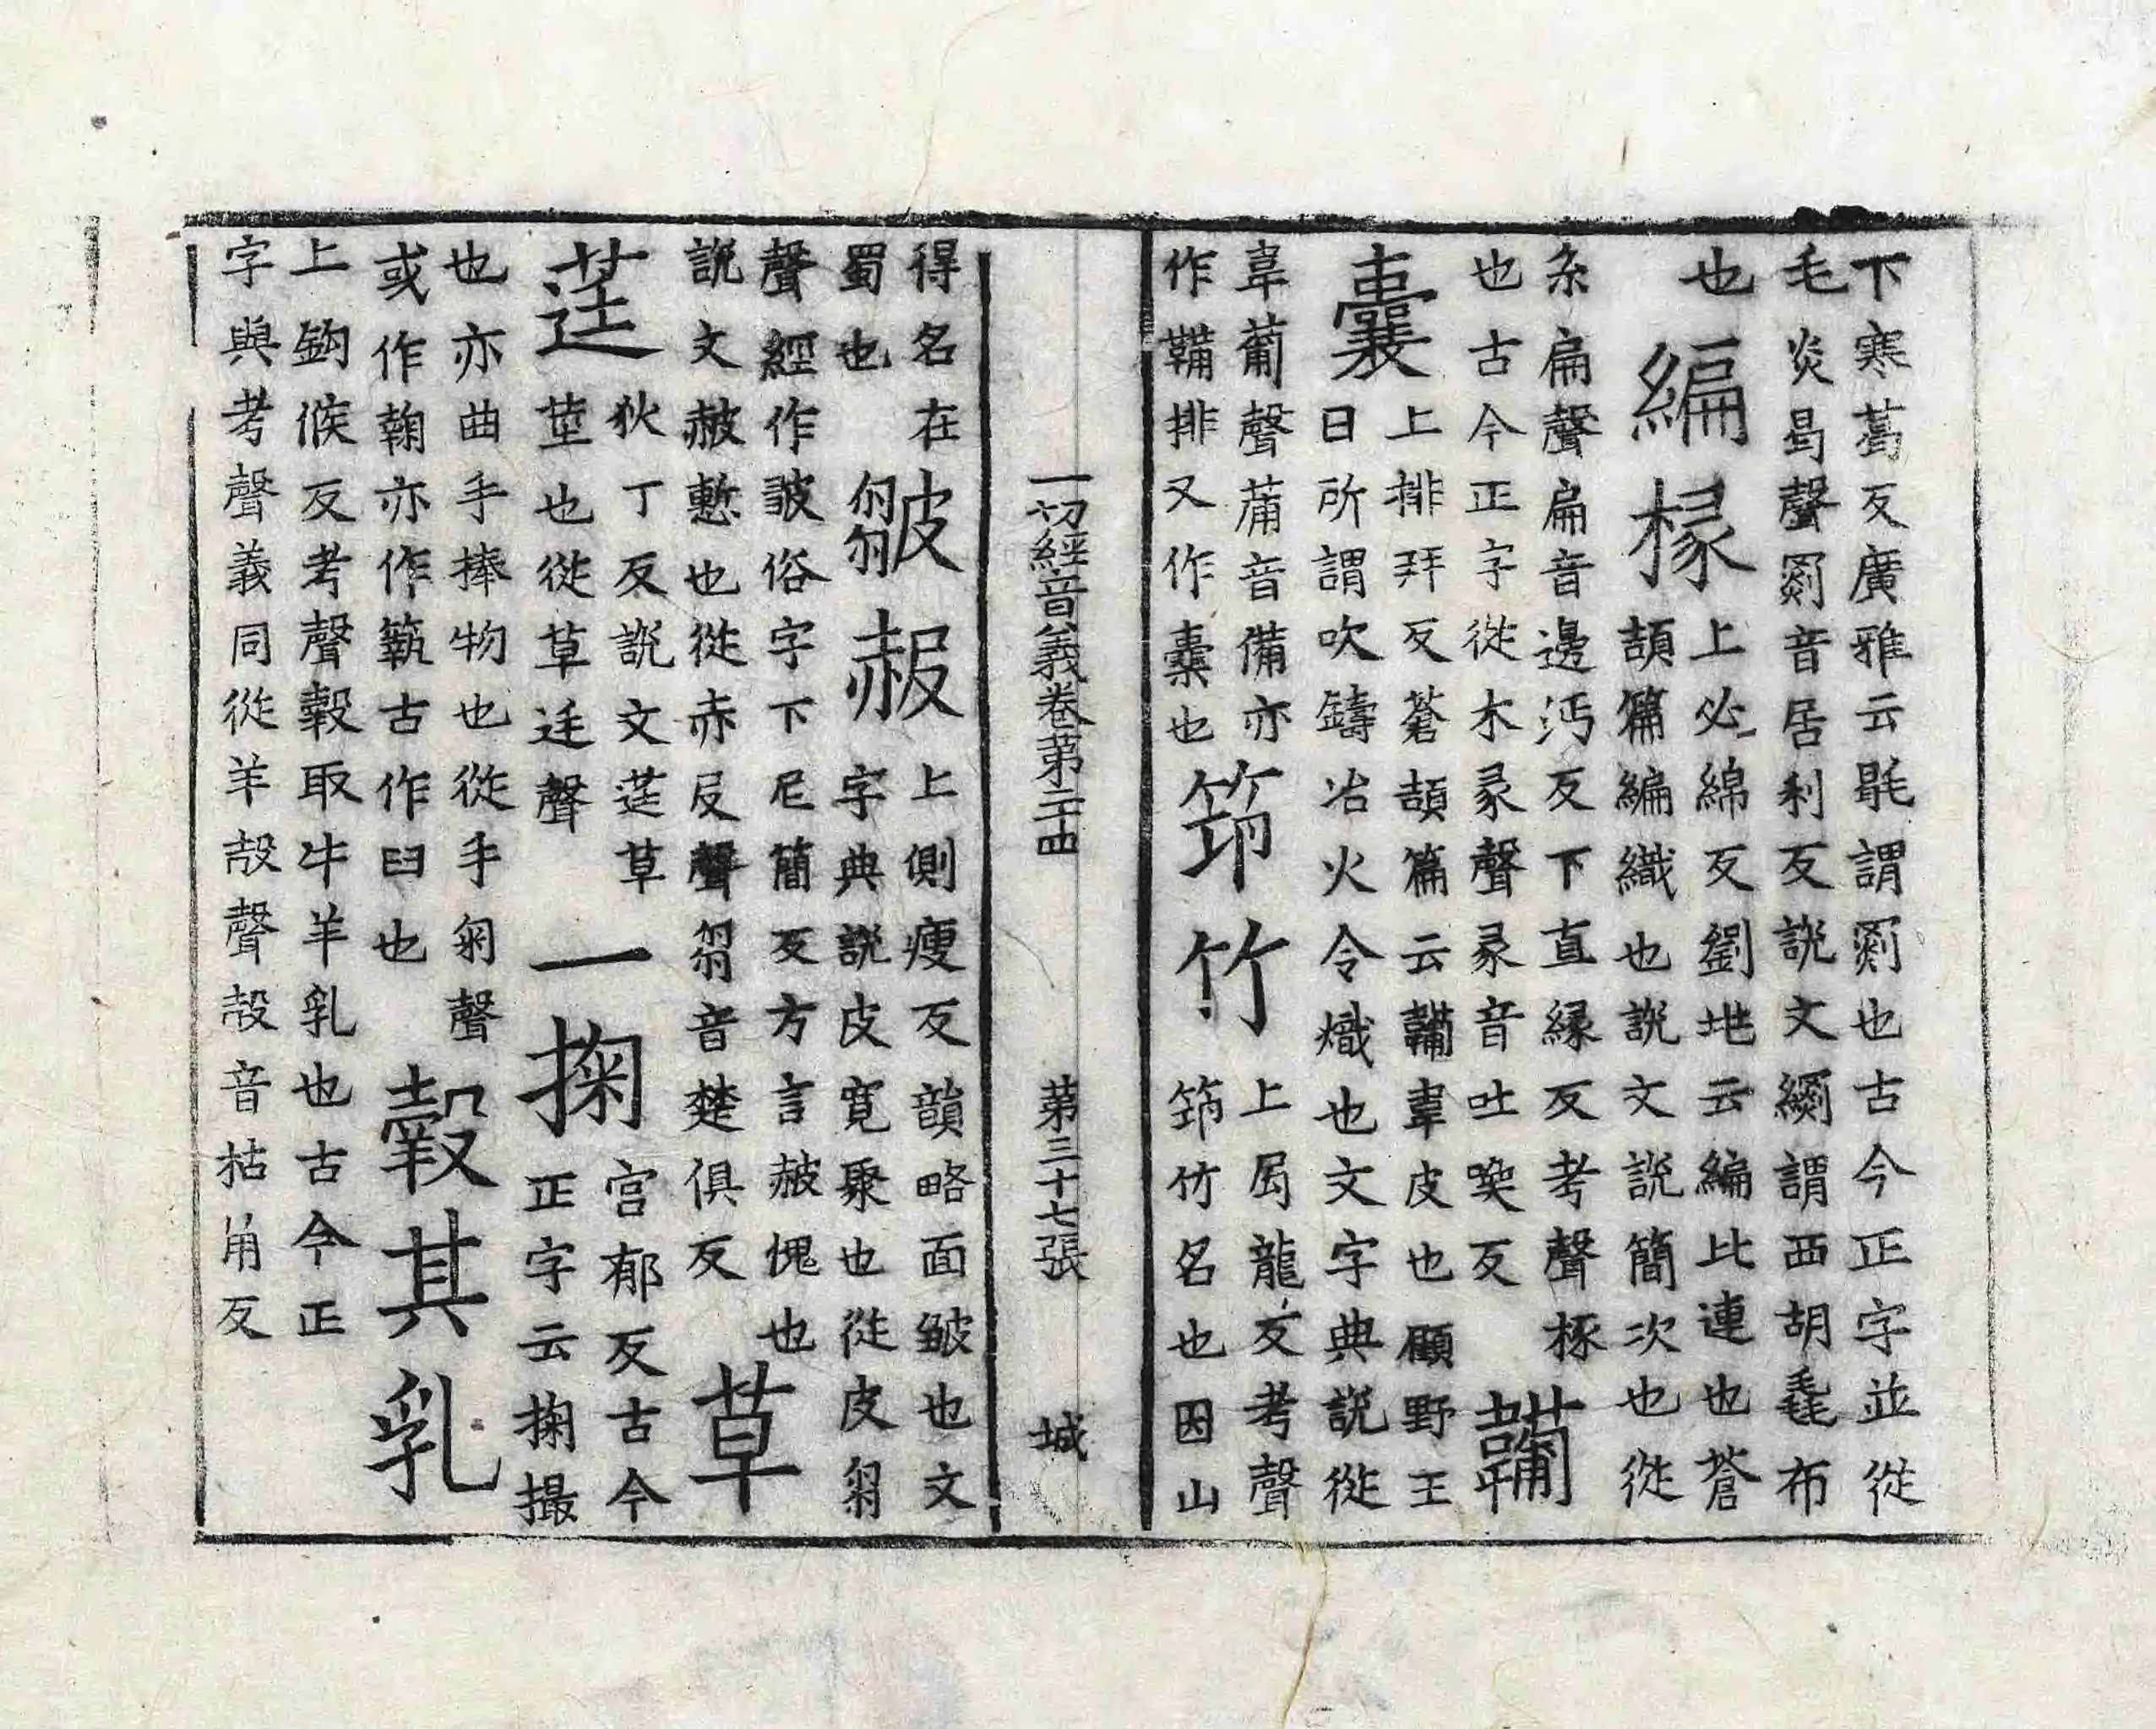 下寒葛反廣雅云㲩謂罽也古今正字並從
毛炎曷聲罽音居利反說文繝謂西胡毳布
也編椽上必綿反劉兆云編比連也蒼
頡篇編織也說文說簡次也從
糸扁聲扁音邊沔反下直緣反考聲椽
也古今正字從木彖聲彖音吐喚反 韛
囊上排拜反蒼頡篇云韛韋皮也顧野王
曰所謂吹鑄冶火令熾也文字典說從
韋𤰇聲𤰇音備亦
作鞴排又作橐也 筇竹上局龍反考聲
筇竹名也因山
得名在
蜀也 皺赧上側瘦反韻略面皺也文
字典說皮寬聚也從皮芻
聲經作㿱俗字下尼簡反方言赧愧也
說文赧慙也從赤𠬝聲芻音楚俱反 草
莛狄丁反說文莛草
莖也從草廷聲 一掬宮郁反古今
正字云掬撮
也亦曲手捧物也從手匊聲
或作鞠亦作䈮古作臼也 㝅其乳
上鉤候反考聲㝅取牛羊乳也古今正
字與考聲義同從羊㱿聲㱿音枯角反
一切經音義卷第二十四 第三十七張 城